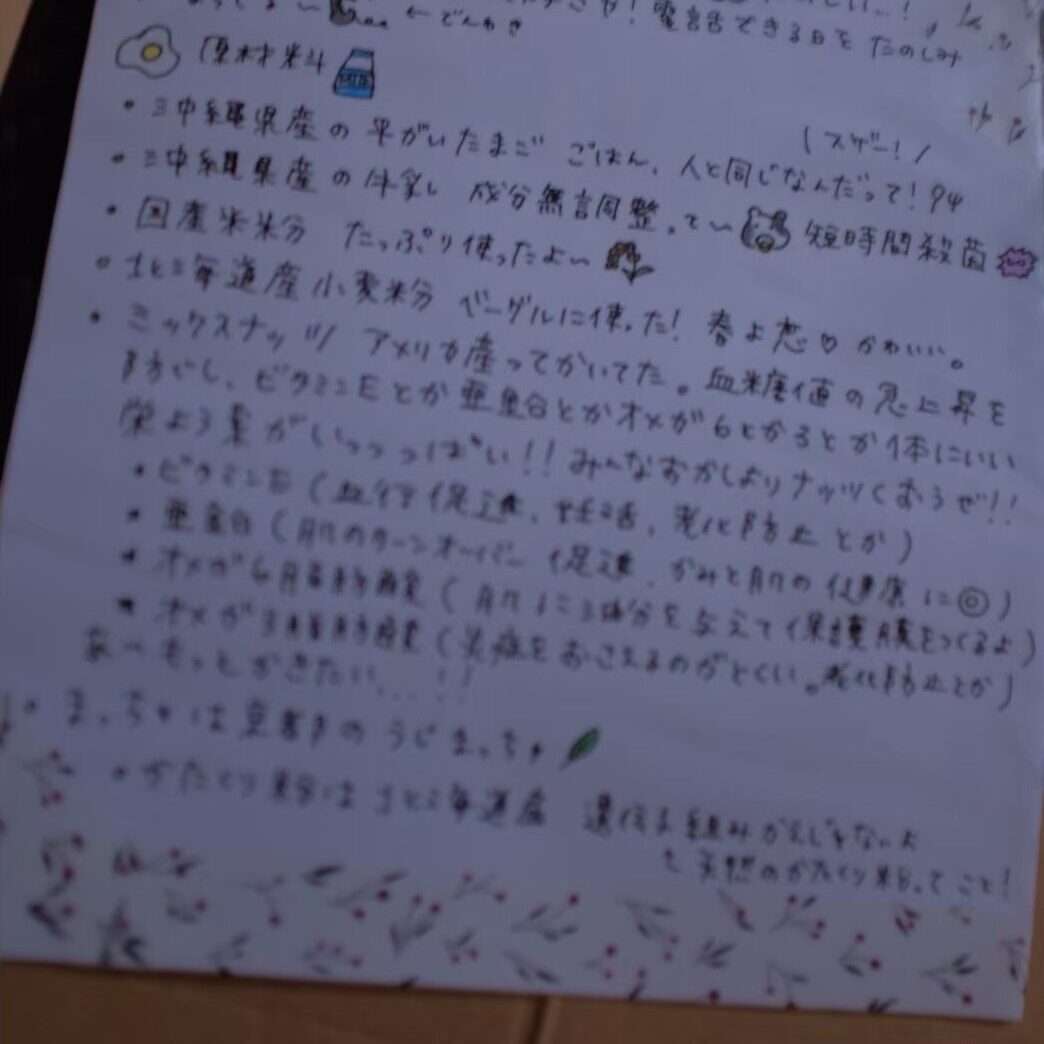 電話できる日をたのしみ
←でんわき
原材料
MILK
\スゲー！/
・沖縄県産の平がいたまご ごはん、人と同じなんだって！94
・沖縄県産の牛乳 成分無調整って〜 短時間殺菌
・国産米米分 たっぷり使ったよ〜
・北海道産小麦粉 ベーグルに使った！ 春よ恋♡かわいい。
・ミックスナッツ アメリカ産ってかいてた。血糖値の急上昇を
防ぐし、ビタミンEとか亜鉛とかオメガ6とか3とか体にいい
栄よう素がいっっっぱい！！みんなおかしよりナッツくおうぜ!!
・ビタミンE（血行促進、妊活、老化防止とか）
・亜鉛（肌のターンオーバー促進、かみと肌の健康に◎）
・オメガ6脂肪酸（肌に油分を与えて保護膜をつくるよ）
・オメガ3脂肪酸（炎症をおさえるのがとくい。老化防止とか）
あーもっとかきたい...!!
・まっちゃは京都のうじまっちゃ
・かたくり粉は北海道産 遺伝子組みかえじゃないよ
天然のかたくり粉ってこと！